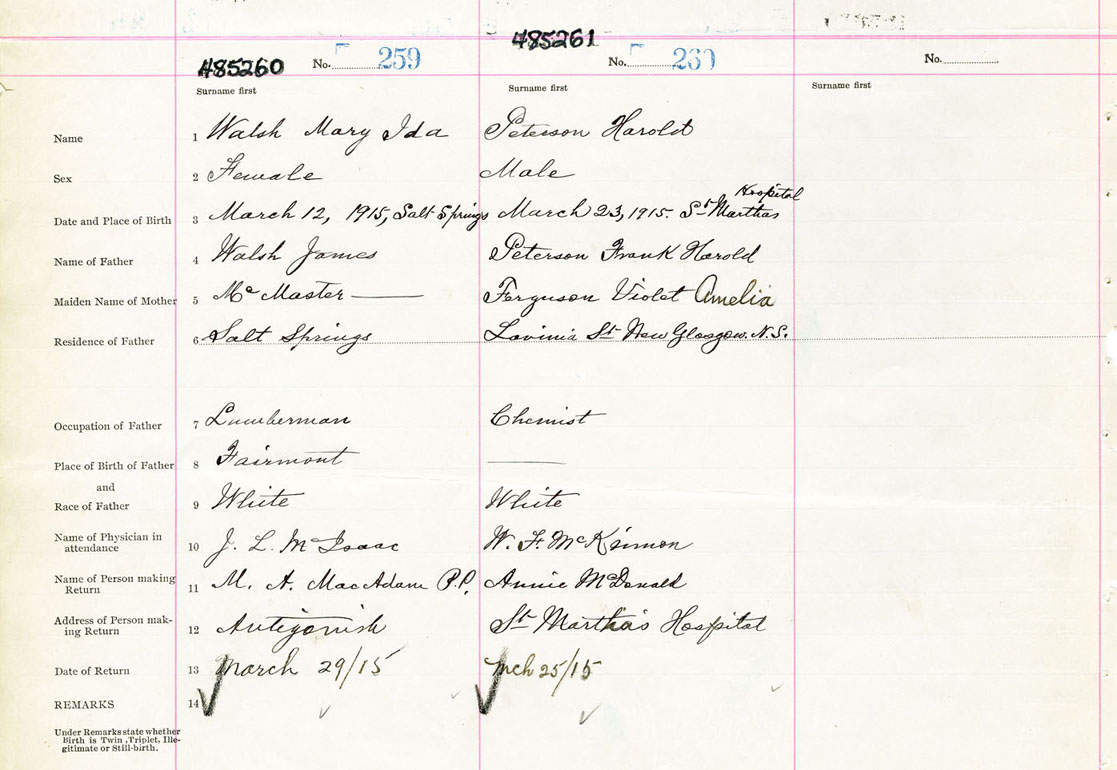 485261
485260 No. 259 No. 260 No.
Surname first Surname first Surname first
Name 1 Walsh Mary Ida Peterson Harold
Sex 2 Female Male
Hospital
Date and Place of Birth 3 March 12, 1915, Salt Springs March 23, 1915. St Marthas
Name of Father 4 Walsh James Peterson Frank Harold
Maiden Name of Mother 5 McMaster — Ferguson Violet Amelia
Residence of Father 6 Salt Springs Lavinia St New Glasgow. N.S.
Occupation of Father 7 Lumberman Chemist
Place of Birth of Father 8 Fairmont —
and
Race of Father 9 White White
Name of Physician in
attendance 10 J. L. McIsaac W. F. McKinnon
Name of Person making
Return 11 M. A. MacAdam P.P. Annie McDonald
Address of Person mak-
ing Return 12 Antigonish St Martha's Hospital
Date of Return 13 March 29/15 Mch 25/15
REMARKS 14
Under Remarks state whether
Birth is Twin, Triplet, Ille-
gitimate or Still-birth.